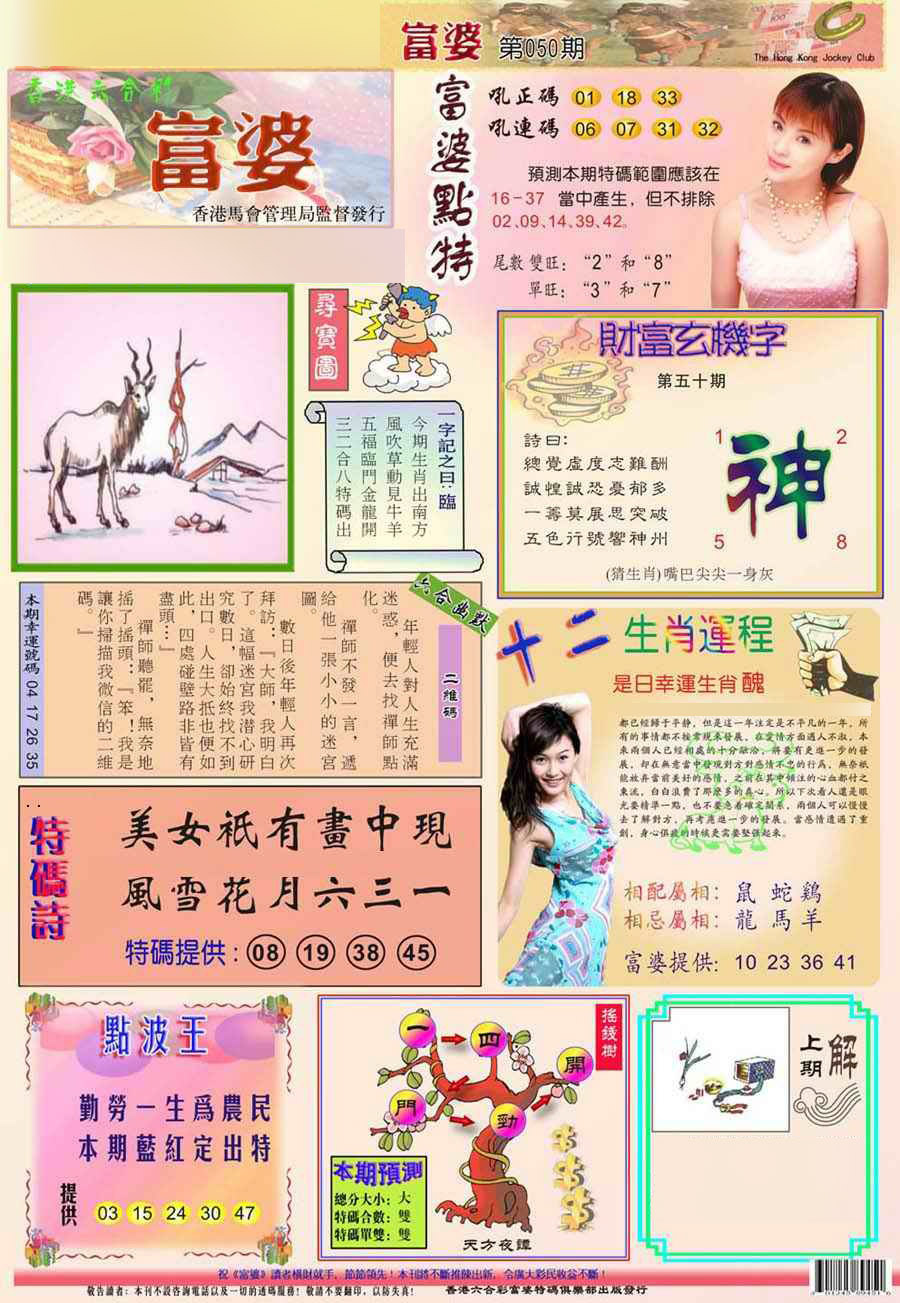 富婆 第050期
The Hong Kong Jockey Club
香港六合彩
富婆
香港馬會管理局監督發行
富婆點特
吼正碼 01 18 33
吼連碼 06 07 31 32
預測本期特碼範圍應該在
16-37 當中產生，但不排除
02、09、14、39、42。
尾數雙旺：“2”和“8”
單旺：“3”和“7”
尋寶圖
一字記之曰：臨
今期生肖出南方
風吹草動見牛羊
五福臨門金龍開
三二合八特碼出
財富玄機字
第五十期
詩曰：
總覺虛度志難酬
誠惶誠恐憂郁多
一籌莫展思突破
五色行號響神州
1 2
神
5 8
(猜生肖)嘴巴尖尖一身灰
六合幽默
二維碼
年輕人對人生充滿
迷惑，便去找禪師點
化。
禪師不發一言，遞
給他一張小小的迷宮
圖。
數日後年輕人再次
拜訪：『大師，我明白
了。這幅迷宮我潜心研
究數日，卻始終找不到
出口。人生大抵也便如
此，四處碰壁路非皆有
盡頭…』
禪師聽罷，無奈地
搖了搖頭：『笨！我是
讓你掃描我微信的二維
碼。』
本期幸運號碼 04 17 26 35
十二生肖運程
是日幸運生肖醜
都已經歸于平静，但是這一年注定是不平凡的一年，所
有的事情都不按常規來發展，在愛情方面遇人不淑，本
來兩個人已經相處的十分融洽，將要有更進一步的發
展，却在無意當中發現對方對感情不忠的行爲，無奈祇
能放弃當前美好的感情，之前在其中傾注的心血都付之
東流，白白浪費了那麽多的真心。所以下次看人還是眼
光要精準一點，也不要急着確定關系，兩個人可以慢慢
去了解對方，再考慮進一步的發展。當感情遭遇了重
創，身心俱疲的時候更需要堅强起來。
相配屬相：鼠 蛇 鷄
相忌屬相：龍 馬 羊
富婆提供：10 23 36 41
特碼詩
美女祇有畫中現
風雪花月六三一
特碼提供：08 19 38 45
點波王
勤勞一生爲農民
本期藍紅定出特
提供 03 15 24 30 47
搖錢樹
一 四 開
門 勁
本期預測
總分大小：大
特碼合數：雙
特碼單雙：雙
天方夜譚
上期解
祝《富婆》讀者橫財就手，節節領先！本刊將不斷推陳出新，令廣大彩民收益不斷！
敬告讀者：本刊不設咨詢電話以及一切的透碼服務！敬請不要翻印，以防失真！ 香港六合彩富婆特碼俱樂部出版發行